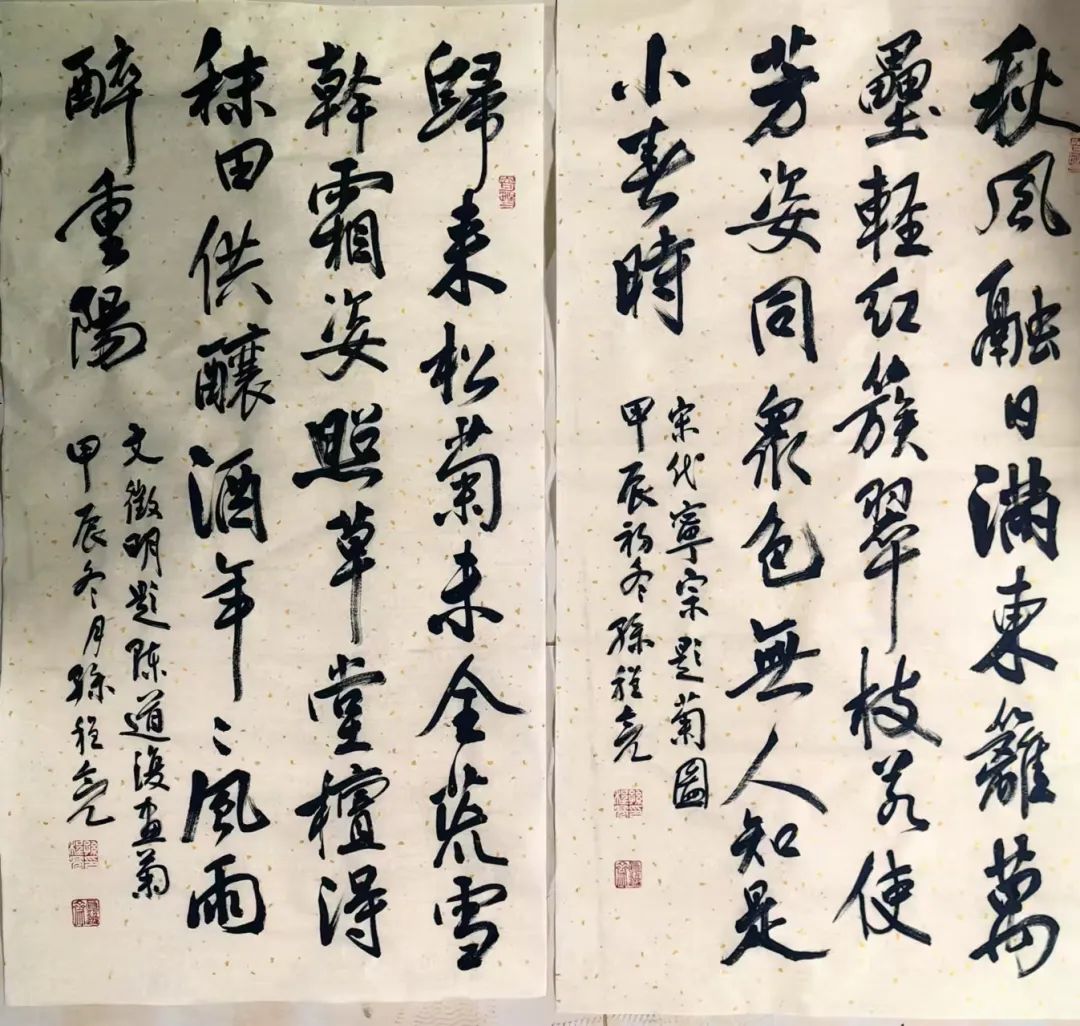 秋风融日满東籬萬
壘輕红簇翠枝若使
芳姿同眾色無人知是
小春時
宋代寧宗題菊圖
甲辰初冬孫程亮
歸来松菊未全荒雪
幹霜姿照草堂檀得
秫田供釀酒年〻風雨
醉重陽
文徵明題陈道復画菊
甲辰冬月孫程亮